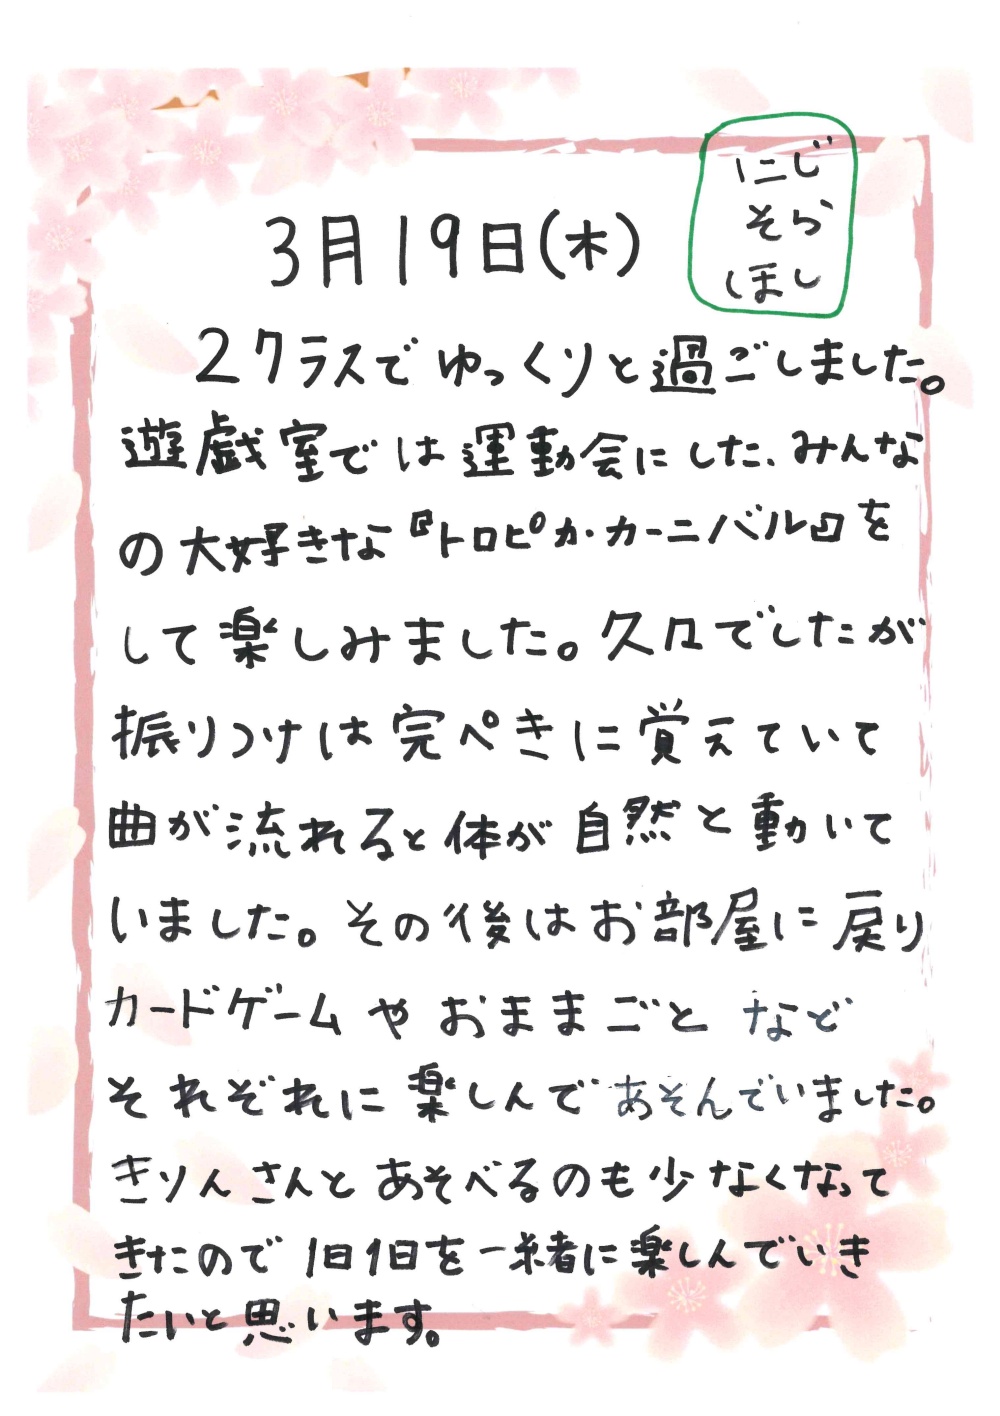 にじ
そら
ほし
3月19日(木)
2クラスでゆっくりと過ごしました。
遊戯室では運動会にした、みんな
の大好きな『トロピカ・カーニバル』を
して楽しみました。久々でしたが
振りつけは完ぺきに覚えていて
曲が流れると体が自然と動いて
いました。その後はお部屋に戻り
カードゲームやおままごとなど
それぞれに楽しんであそんでいました。
きりんさんとあそべるのも少なくなって
きたので1日1日を一緒に楽しんでいき
たいと思います。